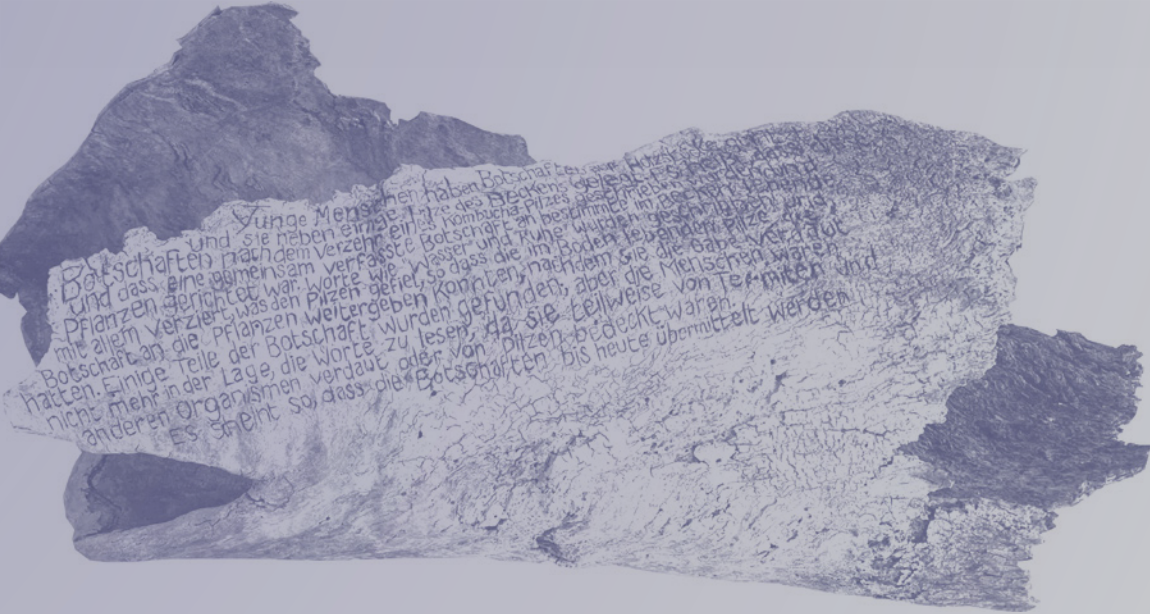 Junge Menschen haben Botschaften
und sie neben eine des Beckens gelegt
Botschaften nach dem verzehr eines Kombucha Pilzes
und dass eine gemeinsam verfasste Botschaft an bestimmte im Becken lebende
Pflanzen gerichtet war. Worte wie Wasser und Ruhe wurden geschrieben und
mit allem verziert, was den Pilzen gefiel, so dass die im Boden lebenden Pilze die
Botschaft an die Pflanzen weitergeben konnten, nachdem sie die Gabe verdaut
hatten. Einige Teile der Botschaft wurden gefunden, aber die Menschen waren
nicht mehr in der Lage, die Worte zu lesen, da sie teilweise von Termiten und
anderen Organismen verdaut oder von Pilzen bedeckt waren.
Es sheint so, dass die Botschaften bis heute übermittelt werden